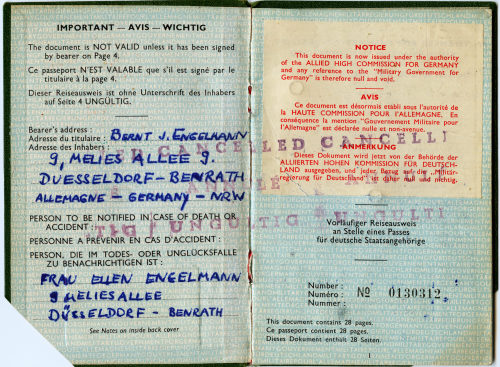 IMPORTANT — AVIS — WICHTIG
The document is NOT VALID unless it has been signed
by bearer on Page 4.
Ce passeport N'EST VALABLE que s'il est signé par le
titulaire à la page 4.
Dieser Reiseausweis ist ohne Unterschrift des Inhabers
auf Seite 4 UNGÜLTIG.
Bearer's address :
Adresse du titulaire : BERNT J. ENGELMANN
Adresse des Inhabers :
9, MELIES ALLEE 9.
DUESSELDORF - BENRATH
ALLEMAGNE - GERMANY - NRW
PERSON TO BE NOTIFIED IN CASE OF DEATH OR
ACCIDENT :
PERSONNE A PRÉVENIR EN CAS D'ACCIDENT :
PERSON, DIE IM TODES- ODER UNGLÜCKSFALLE
ZU BENACHRICHTIGEN IST :
FRAU ELLEN ENGELMANN
9 MELIES ALLEE
DÜSSELDORF - BENRATH
See Notes on inside back cover
NOTICE
This document is now issued under the authority
of the ALLIED HIGH COMMISSION FOR GERMANY
and any reference to the "Military Government for
Germany" is therefore null and void.
AVIS
Ce document est désormais établi sous l'autorité de
la HAUTE COMMISSION POUR L'ALLEMAGNE. En
conséquence la mention "Gouvernement Militaire pour
l'Allemagne" est déclarée nulle et non-avenue.
ANMERKUNG
Dieses Dokument wird jetzt von der Behörde der
ALLIIERTEN HOHEN KOMMISSION FÜR DEUTSCH-
LAND ausgegeben, und jeder Bezug auf die "Militär-
regierung für Deutschland" ist daher null und nichtig.
CANCELLED CANCELL
UNGÜLTIG UNGÜLTI
Vorläufiger Reiseausweis
an Stelle eines Passes
für deutsche Staatsangehörige
Number :
Numéro : Nº 0130312
Nummer :
This document contains 28 pages.
Ce passeport contient 28 pages.
Dieses Dokument enthält 28 Seiten.
1